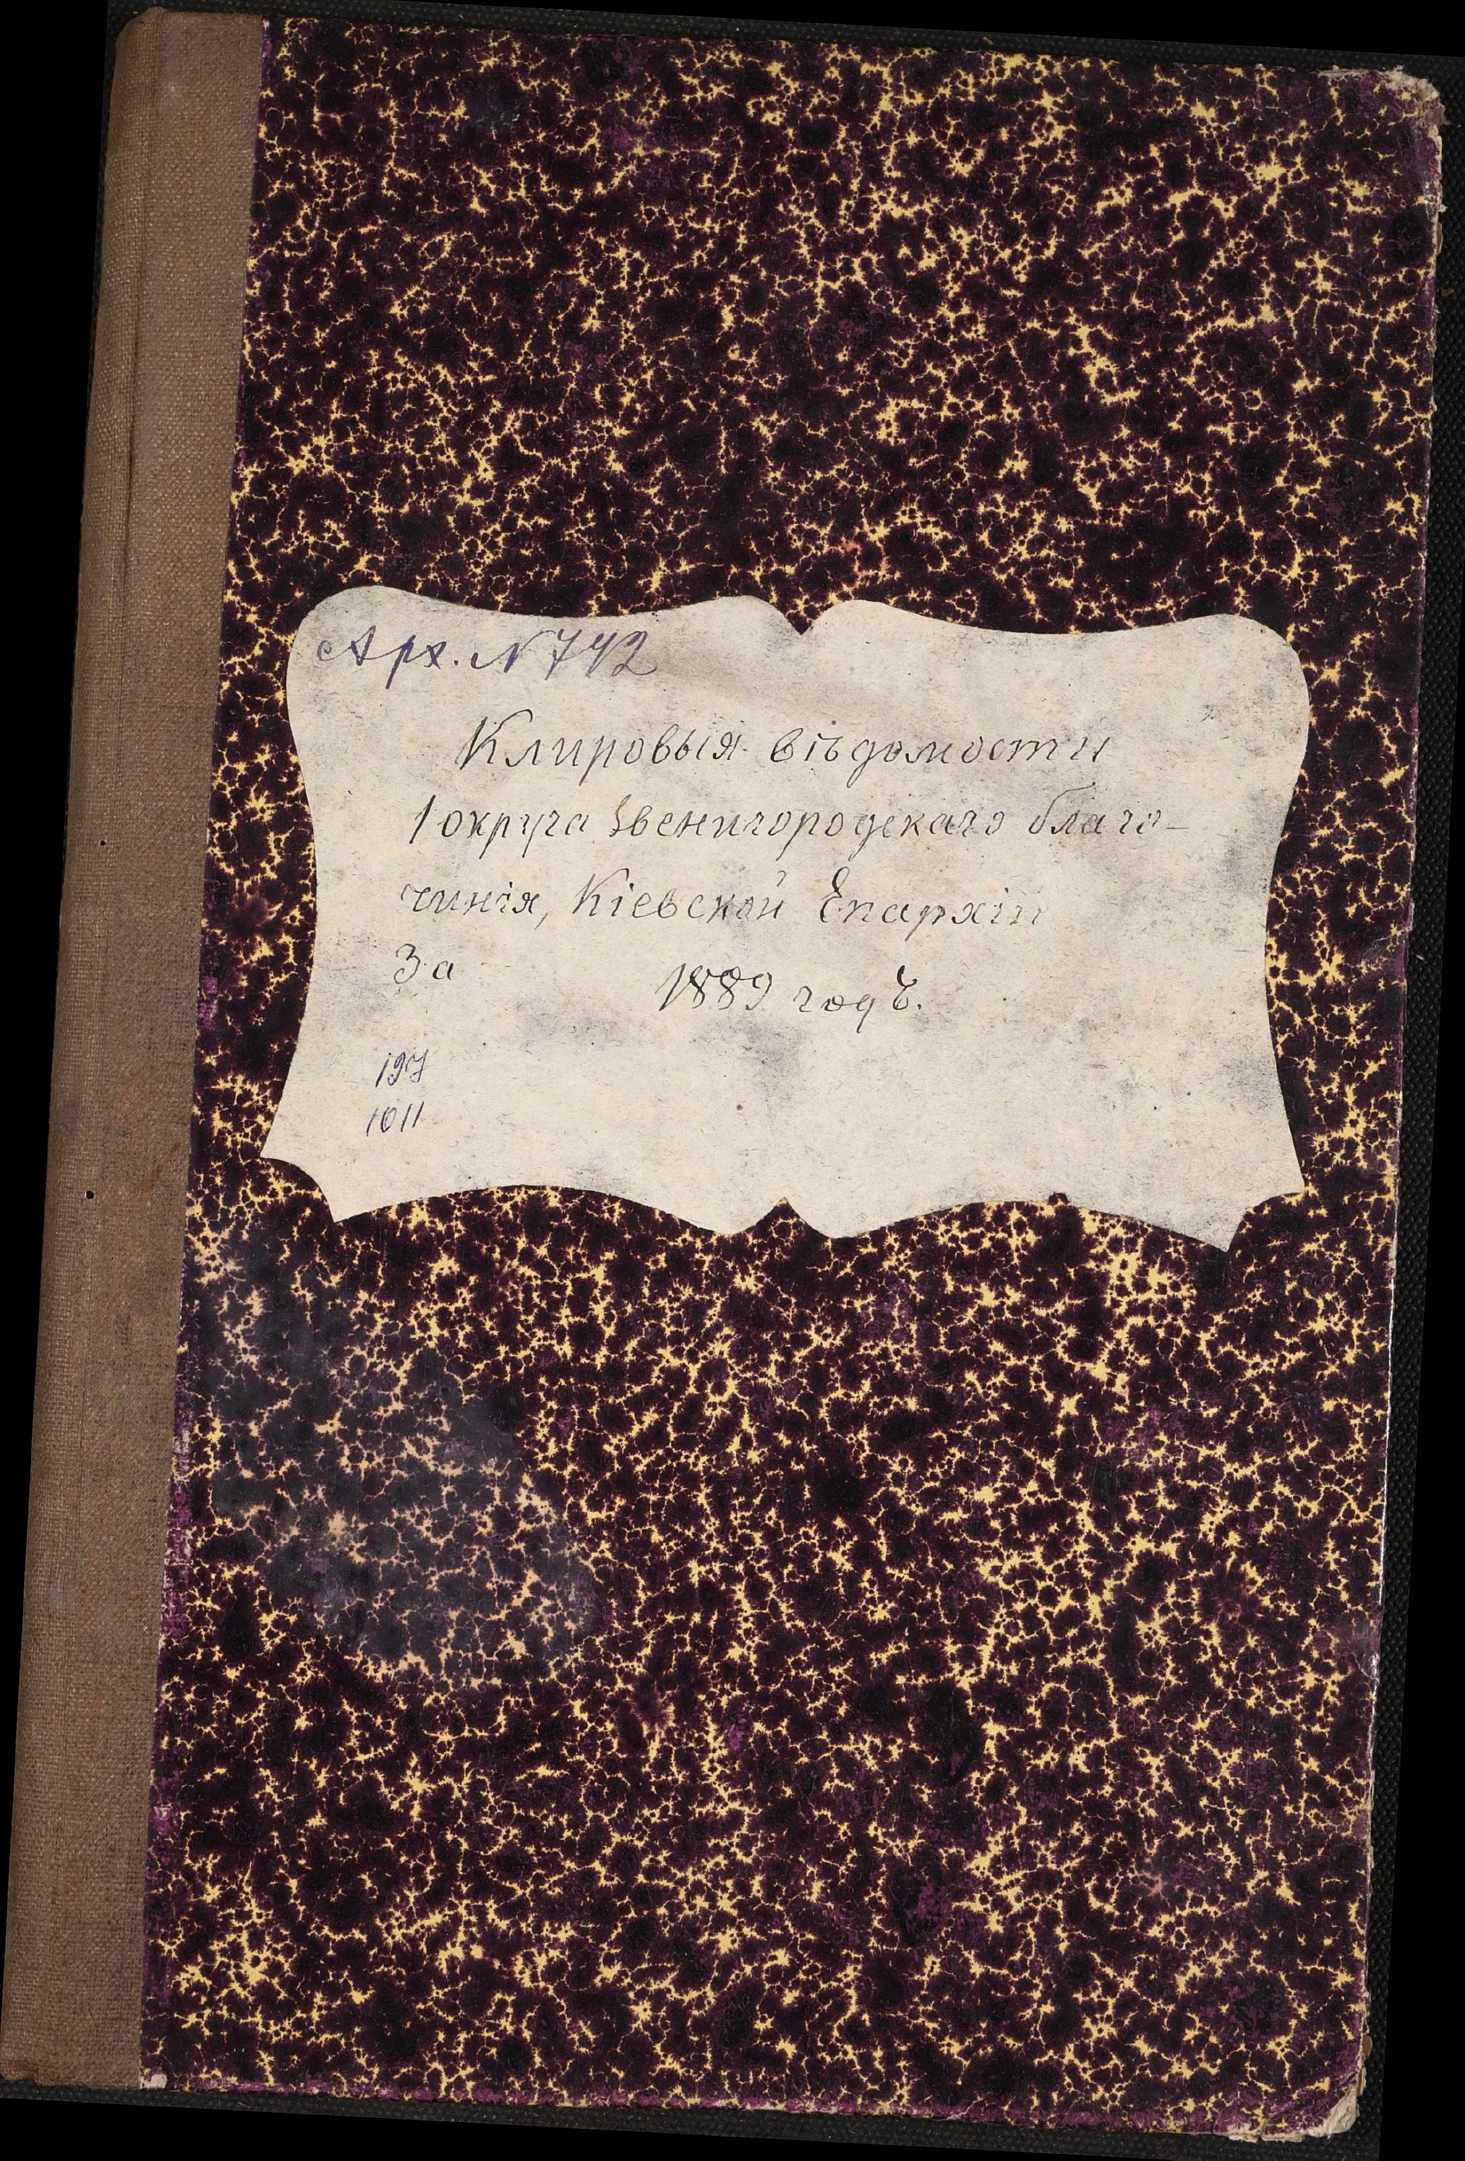 Арх. N 742
Клировыя вѣдомости
1 округа Звенигородскаго благо-
чинія, Кіевской Епархіи
За
1889 годъ.
197
1011